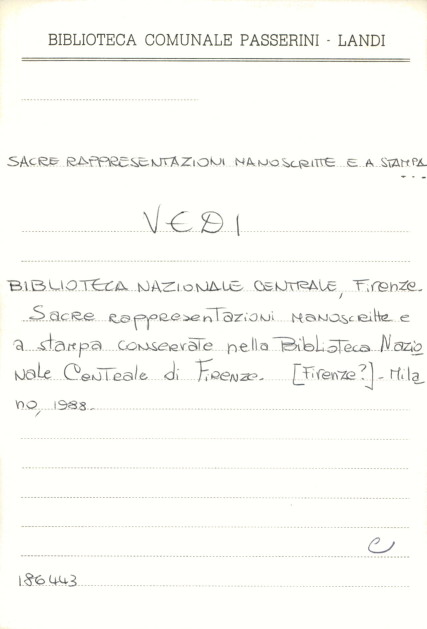 BIBLIOTECA COMUNALE PASSERINI - LANDI
SACRE RAPPRESENTAZIONI MANOSCRITTE E A STAMPA
...
VEDI
BIBLIOTECA NAZIONALE CENTRALE, Firenze.
Sacre rappresentazioni manoscritte e
a stampa conservate nella Biblioteca Nazio
nale Centrale di Firenze. [Firenze?] - Mila
no, 1988.
C
186443